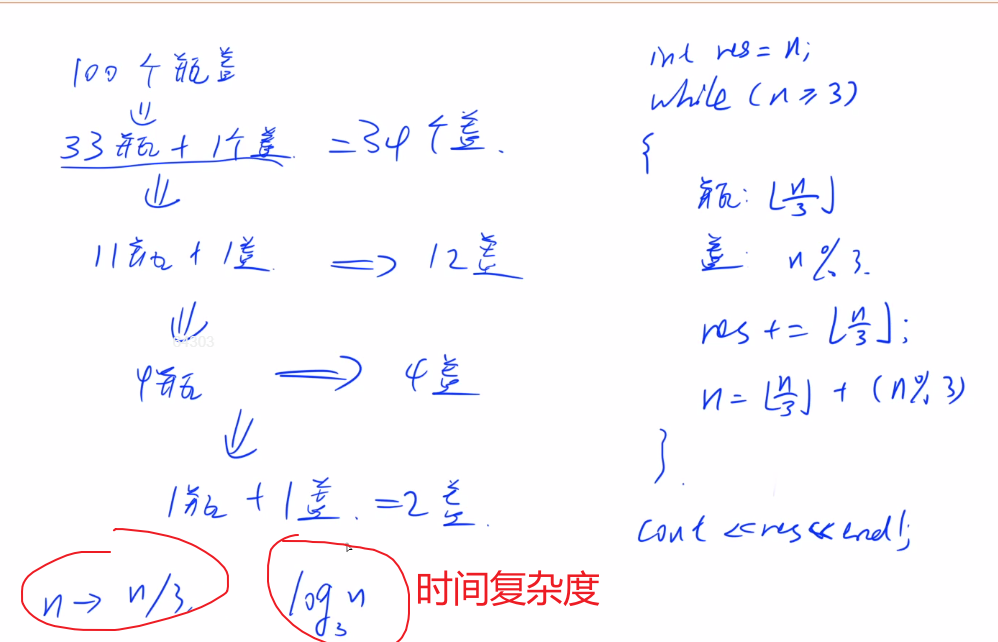 100个瓶盖
⇓
33瓶 + 1个盖 = 34个盖.
⇓
11瓶 + 1盖 => 12盖
⇓
4瓶 => 4盖
⇓
1瓶 + 1盖. = 2盖.
n → n/3.
log₃n
时间复杂度
int res = n;
while (n ≥ 3)
{
瓶: ⌊n/3⌋
盖 n % 3.
res += ⌊n/3⌋;
n = ⌊n/3⌋ + (n % 3)
}.
cout << res << endl;